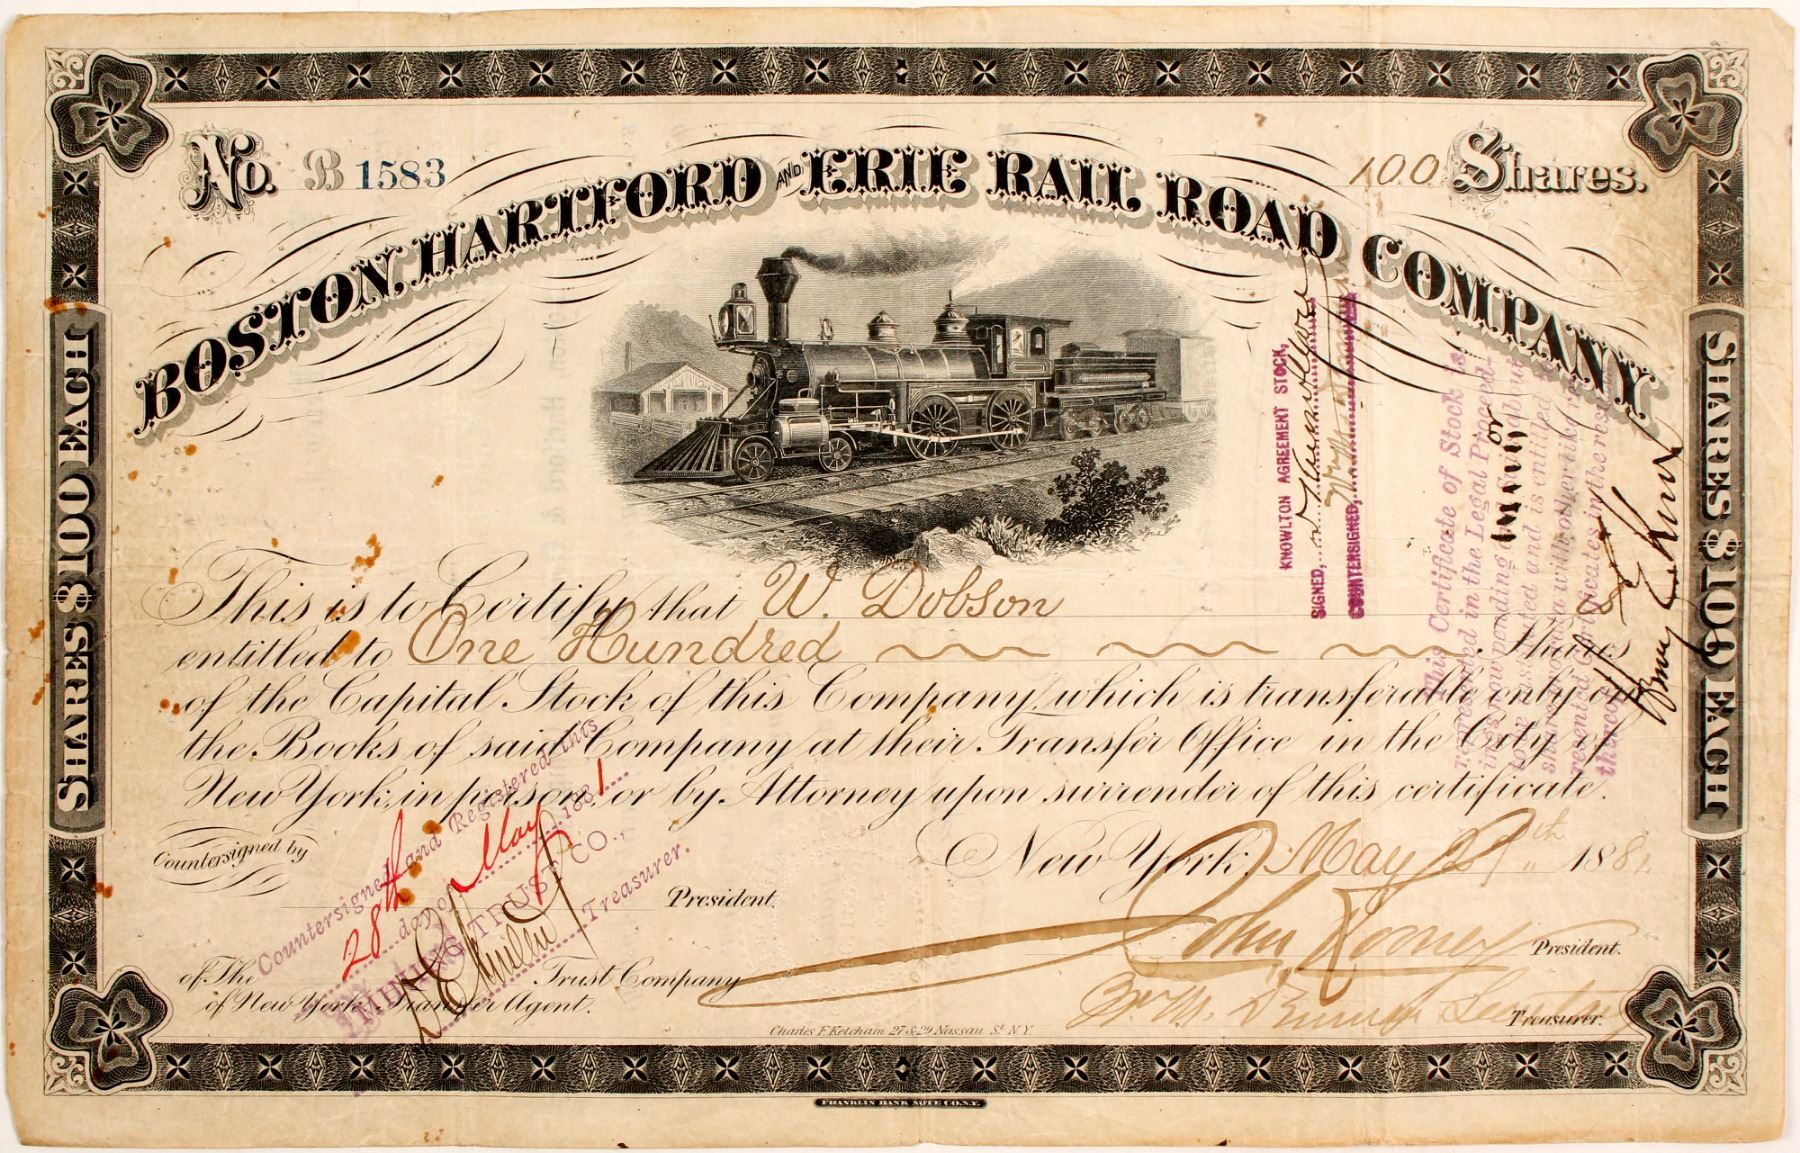 No. B 1583
100 Shares.
BOSTON, HARTFORD AND ERIE RAIL ROAD COMPANY
SHARES $100 EACH
SHARES $100 EACH
KNOWLTON AGREEMENT STOCK,
SIGNED,
COUNTERSIGNED,
This Certificate of Stock is
represented in the Legal Proceed-
ings now pending
or
and is entitled
with other like
resented Certificates in the
thereof
This is to Certify that W. Dobson is
entitled to One Hundred Shares
of the Capital Stock of this Company, which is transferable only on
the Books of said Company at their Transfer Office in the City of
New York, in person or by Attorney upon surrender of this certificate.
Countersigned by
New York, May 28th 1881
Countersigned and Registered this
28th day of May 1881
MINING TRUST CO.,
Treasurer.
President.
of The Trust Company
of New York, Transfer Agent.
John Rooney President.
Wm. Secretary
Treasurer.
Charles F. Ketcham 27 & 29 Nassau St. N.Y.
FRANKLIN BANK NOTE CO. N.Y.